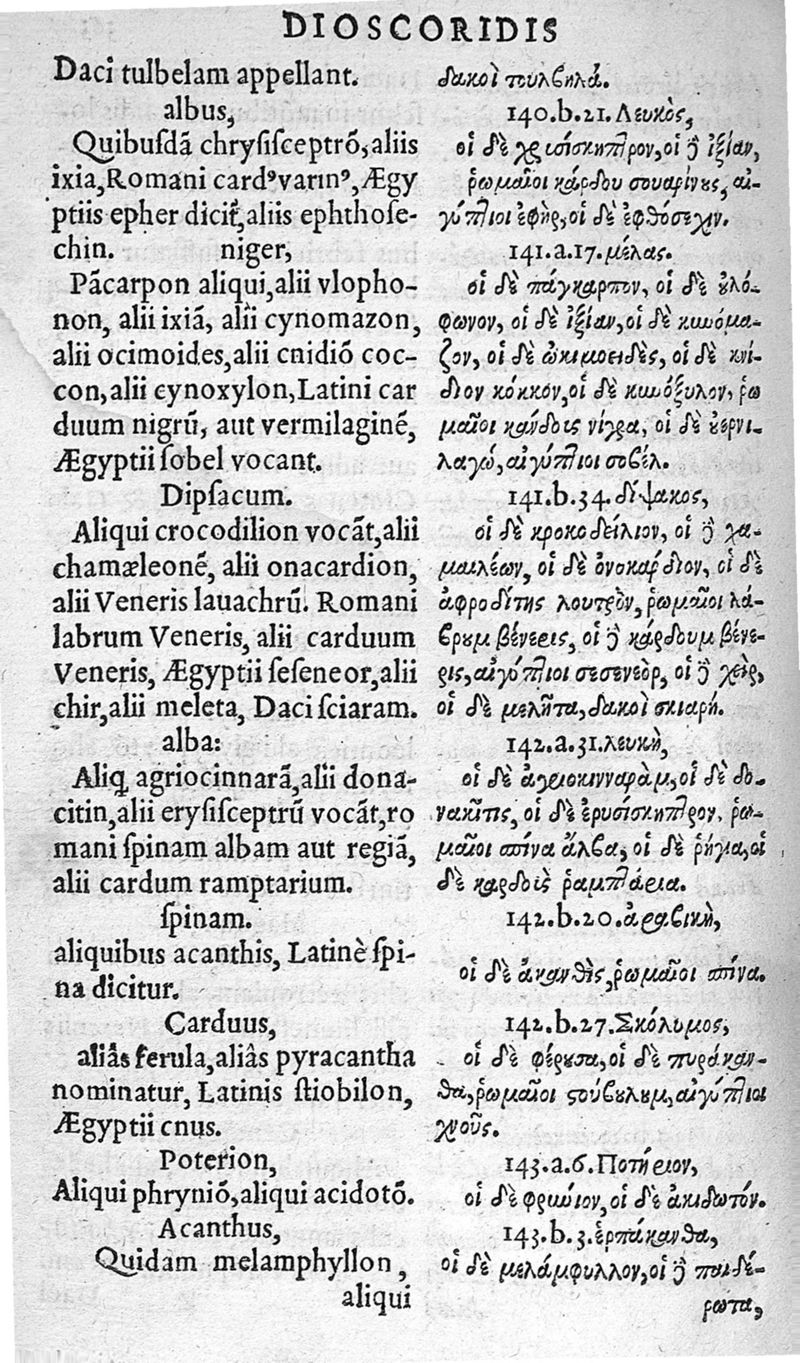 DIOSCORIDIS
Daci tulbelam appellant.
albus,
Quibusdā chrysisceptrō, aliis
ixia, Romani cardꝰ varinꝰ, Ægy
ptiis epher dicit̃, aliis ephthose-
chin. niger,
Pācarpon aliqui, alii vlopho-
non, alii ixiā, alii cynomazon,
alii ocimoides, alii cnidiō coc-
con, alii cynoxylon, Latini car
duum nigrū, aut vermilaginē,
Ægyptii sobel vocant.
Dipsacum.
Aliqui crocodilion vocāt, alii
chamæleonē, alii onacardion,
alii Veneris lauachrū. Romani
labrum Veneris, alii carduum
Veneris, Ægyptii seseneor, alii
chir, alii meleta, Daci sciaram.
alba:
Aliq̨ agriocinnarā, alii dona-
citin, alii erysisceptrū vocāt, ro
mani spinam albam aut regiā,
alii cardum ramptarium.
spinam.
aliquibus acanthis, Latinè spi-
na dicitur.
Carduus,
aliâs ferula, aliâs pyracantha
nominatur, Latinis stiobilon,
Ægyptii cnus.
Poterion,
Aliqui phryniō, aliqui acidotō.
Acanthus,
Quidam melamphyllon,
aliqui
δακοὶ τουλβηλά.
140.b.21. Λευκὸς,
οἱ δὲ χρισίσκηπτρον, οἱ δὲ ἰξίαν,
ῥωμαῖοι κάρδου σουαρίνους, αἰ-
γύπτιοι ἐφὴρ, οἱ δὲ ἐφθόσεχιν.
141.a.17. μέλας.
οἱ δὲ πάγκαρπον, οἱ δὲ οὐλό-
φωνον, οἱ δὲ ἰξίαν, οἱ δὲ κυνόμα-
ζον, οἱ δὲ ὠκιμοειδὲς, οἱ δὲ κνί-
διον κόκκον, οἱ δὲ κυνόξυλον, ῥω
μαῖοι κάρδους νίγρα, οἱ δὲ οὐερνι-
λαγώ, αἰγύπτιοι σοβέλ.
141.b.34. δίψακος,
οἱ δὲ κροκοδείλιον, οἱ δὲ χα-
μαιλέων, οἱ δὲ ὀνοκάρδιον, οἱ δὲ
ἀφροδίτης λουτρὸν, ῥωμαῖοι λά-
βρουμ βένερις, οἱ δὲ κάρδουμ βένε-
ρις, αἰγύπτιοι σεσενεὸρ, οἱ δὲ χεὶρ,
οἱ δὲ μελῆτα, δακοὶ σκιαρή.
142.a.31. λευκὴ,
οἱ δὲ ἀγριοκινναρὰμ, οἱ δὲ δο-
νακῖτις, οἱ δὲ ἐρυσίσκηπτρον, ῥω-
μαῖοι σπίνα ἄλβα, οἱ δὲ ῥήγια, οἱ
δὲ καρδοὶς ῥαμπτάρια.
142.b.20. ἀραβικὴ,
οἱ δὲ ἀκανθὶς, ῥωμαῖοι σπίνα.
142.b.27. Σκόλυμος,
οἱ δὲ φέρουσα, οἱ δὲ πυράκαν-
θα, ῥωμαῖοι στούβουλουμ, αἰγύπτιοι
χνοῦς.
143.a.6. Ποτήριον,
οἱ δὲ φρυώιον, οἱ δὲ ἀκιδωτόν.
143.b.3. ἑρπάκανθα,
οἱ δὲ μελάμφυλλον, οἱ δὲ παιδέ-
ρωτα,